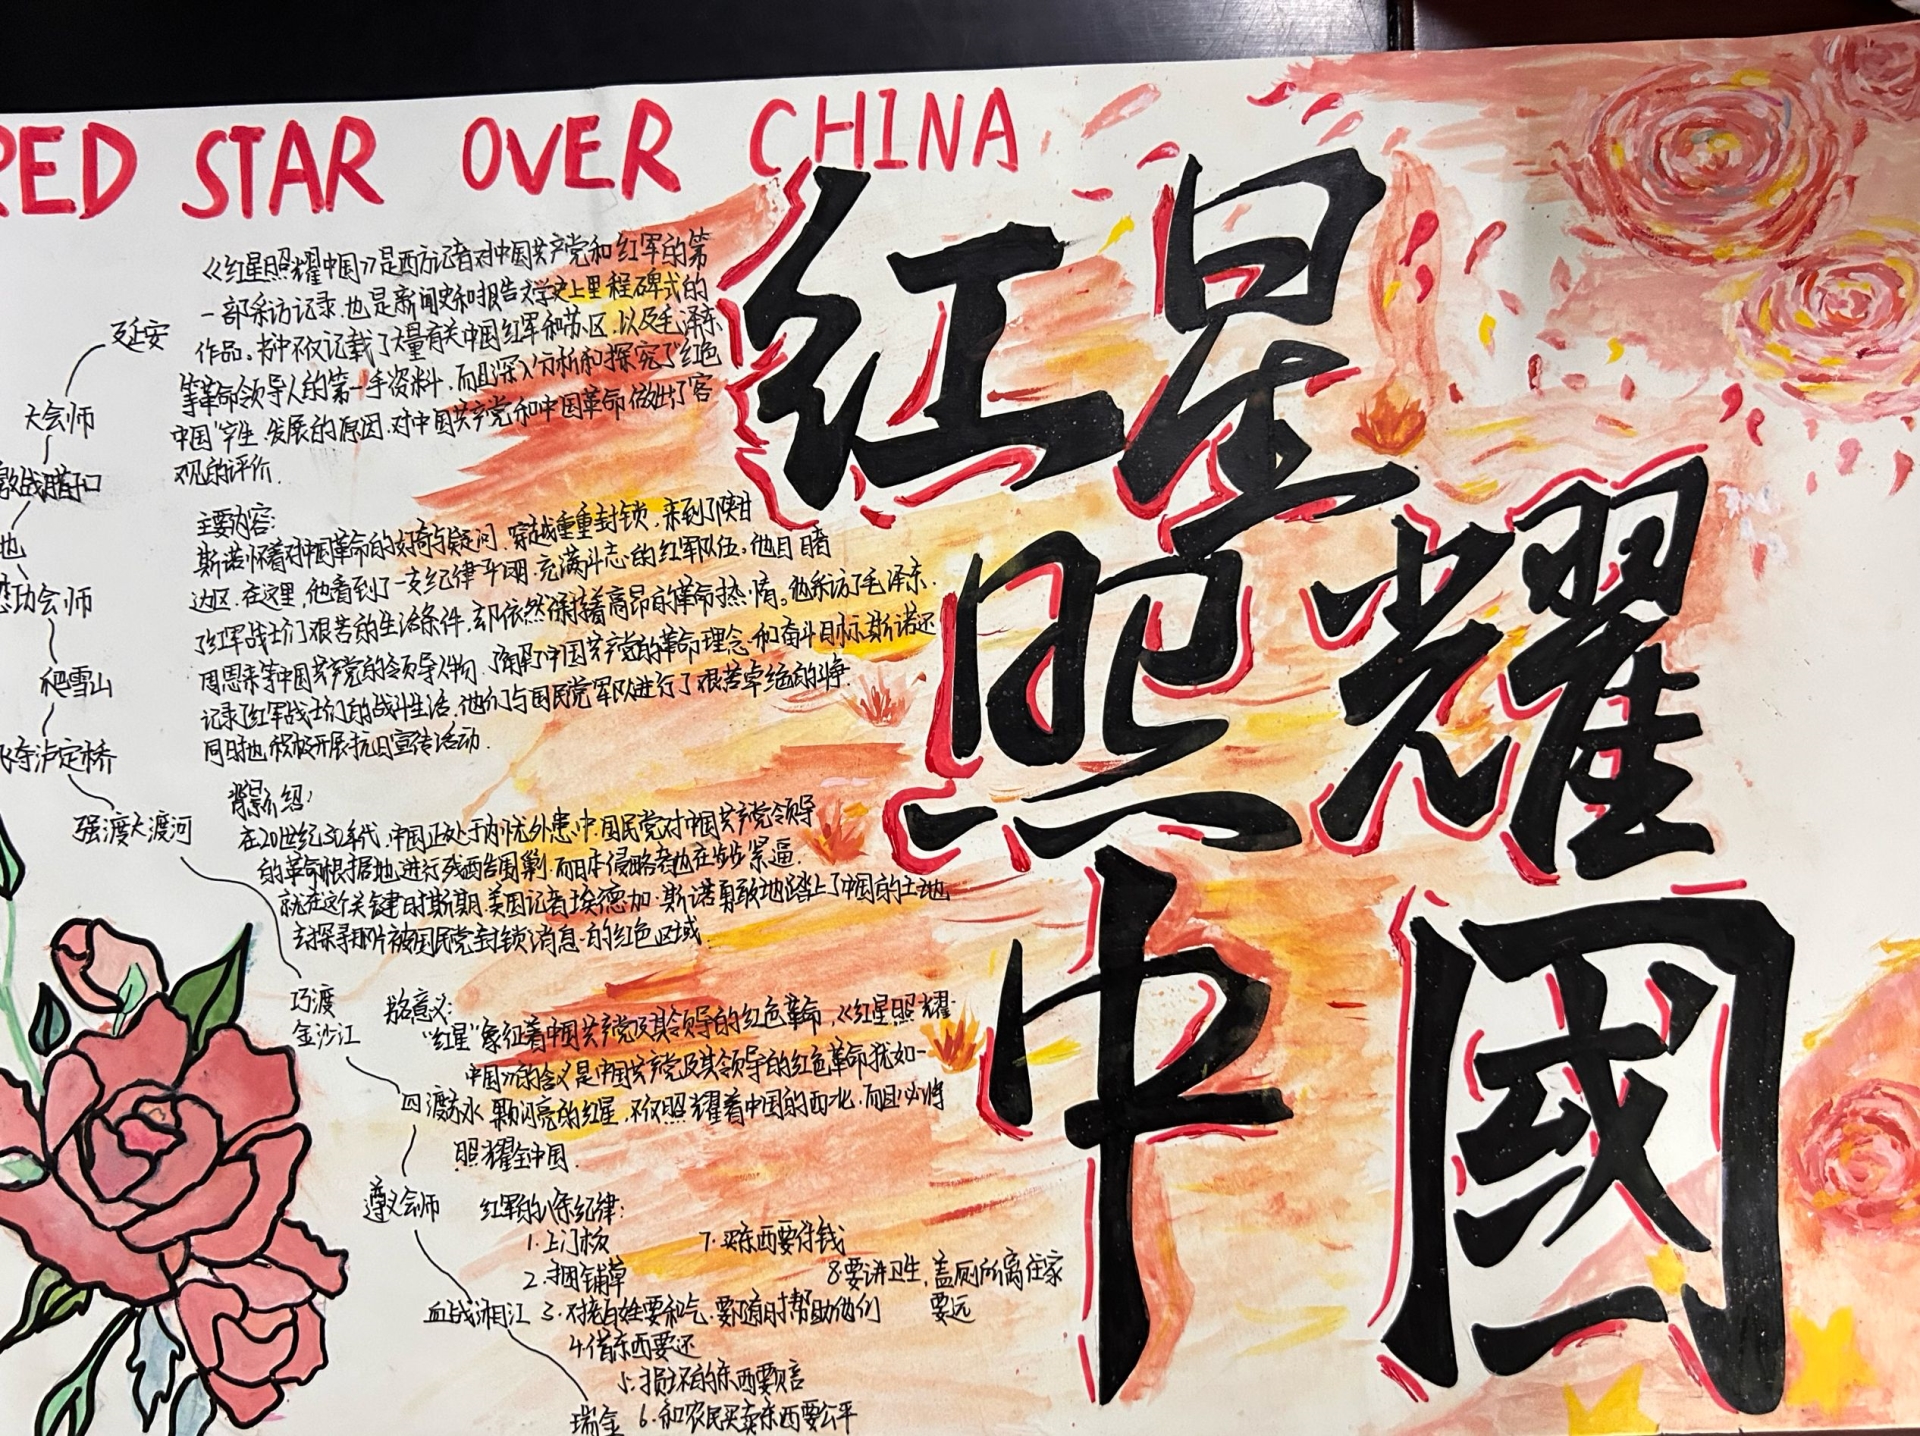 RED STAR OVER CHINA
红星
照耀
中國
《红星照耀中国》是西方记者对中国共产党和红军的第
一部采访记录,也是新闻史和报告文学史上里程碑式的
作品。书中不仅记载了大量有关中国红军和苏区,以及毛泽东
等革命领导人的第一手资料,而且深入分析和探究了"红色
中国"产生、发展的原因,对中国共产党和中国革命做出了客
观的评价.
主要内容:
斯诺怀着对中国革命的好奇与疑问,穿越重重封锁,来到了陕甘
边区.在这里,他看到了一支纪律严明,充满斗志的红军队伍。他目睹
了红军战士们艰苦的生活条件,却依然保持着高昂的革命热情。他采访了毛泽东、
周恩来等中国共产党的领导人物,了解了中国共产党的革命理念和奋斗目标.斯诺还
记录了红军战士们的战斗生活,他们与国民党军队进行了艰苦卓绝的斗争.
同时也积极开展抗日宣传活动.
背景介绍:
在20世纪30年代,中国正处于内忧外患中,国民党对中国共产党领导
的革命根据地进行残酷围剿,而日本侵略者也在步步紧逼.
就在这个关键时斯期,美国记者埃德加·斯诺勇敢地踏上了中国的土地
去探寻那片被国民党封锁消息的红色区域.
意义:
"红星"象征着中国共产党及其领导的红色革命,《红星照耀
中国》的含义是中国共产党及其领导的红色革命犹如一
颗闪亮的红星,不仅照耀着中国的西北,而且必将
照耀全中国.
红军的八条纪律:
1.上门板
2.捆铺草
3.对老百姓要和气,要随时帮助他们
4.借东西要还
5.损坏的东西要赔
6.和农民买卖东西要公平
7.买东西要付钱
8要讲卫生,盖厕所离住家
要远
延安
大会师
激战腊子口
地
懋功会师
爬雪山
飞夺泸定桥
强渡大渡河
巧渡
金沙江
四渡赤水
遵义会师
血战湘江
瑞金